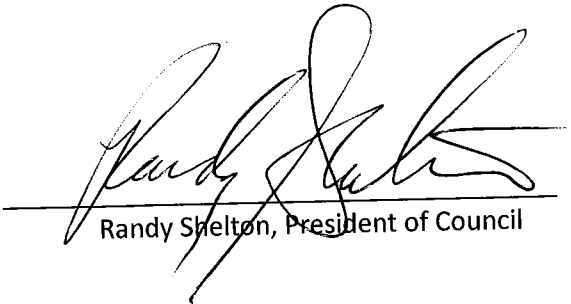 Randy Shelton
Randy Shelton, President of Council